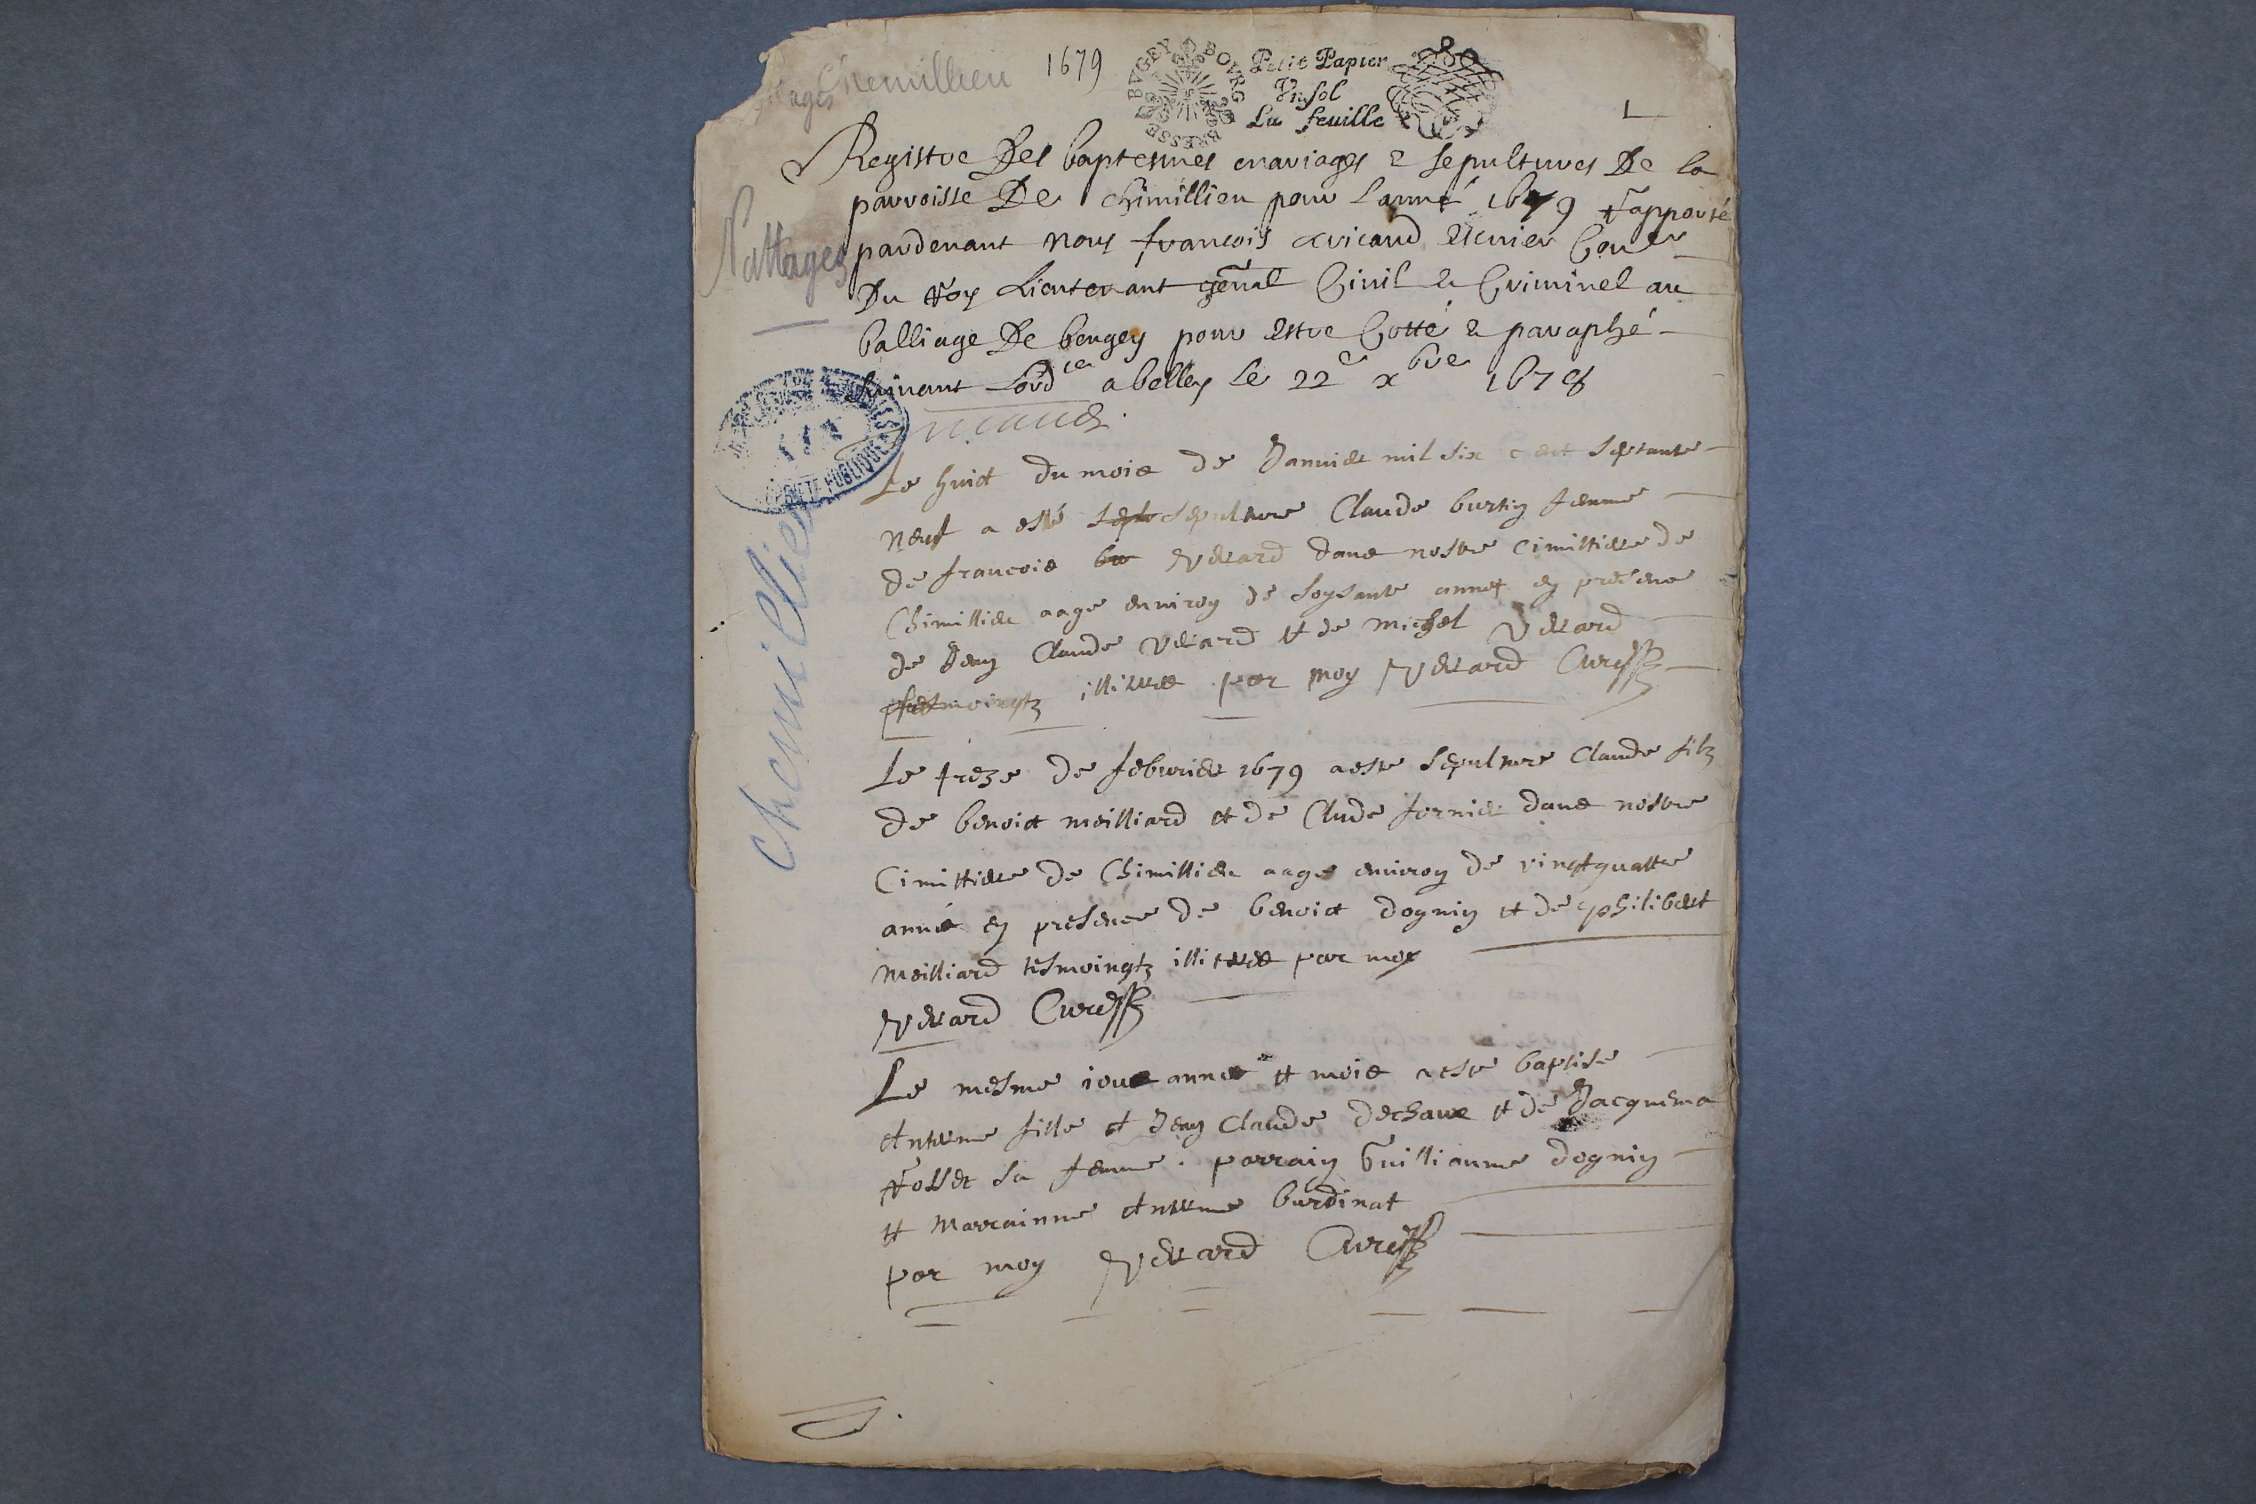 Nattages Chemillieu 1679
BVGEY BOVRG BRESSE
Petit Papier
Vn sol
La feuille
1
Registre Des baptesmes mariages & sepultures De la
parroisse De Chimillieu pour l'anné 1679 rapporté
pardevant nous françois Escuier Coner
Du Roy Lieutenant genal Civil & Criminel au
balliage De beugey pour Estre Cotté & paraphé
suivant Lordce a belley le 22e xbre 1678
Nattages
PUBLIQUE
Chemillieu
Le huict du mois de Janvier mil six cent septante
neuf a esté sepulture Claude burtin femme
de francois Verard dans nostre cimittiere de
Chimillieu aage environ de soysante annes en presence
de Jean Claude Verard et de michel Verard
tesmoingtz illiteres par moy Verard Curé
Le treze de febvrier 1679 a este sepulture Claude filz
de benoict meilliard et de Clude fornier dans nostre
Cimittiere de Chimillieu aage environ de vingtquattre
année en presence de benoict dognin et de philibert
Meilliard tesmoingtz illiteres par moy
Verard Curé
Le mesme iour année et moie a este baptise
Anteme fille et Jean Claude dechaux et de Jacquema
Rosset sa femme. parrain Guilliaume dognin
et Marrainne Anteme burdinat
par moy Verard Curé